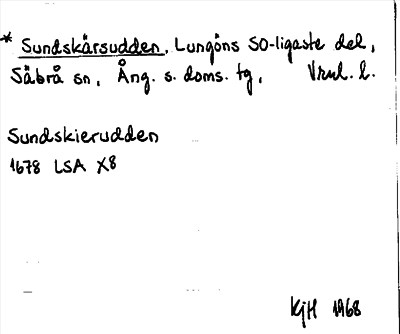 * Sundskärsudden, Lungöns SO-ligaste del,
Säbrå sn, Ång. s. doms. tg, Vnrl. l.
Sundskierudden
1678 LSA X8
KjH 1968